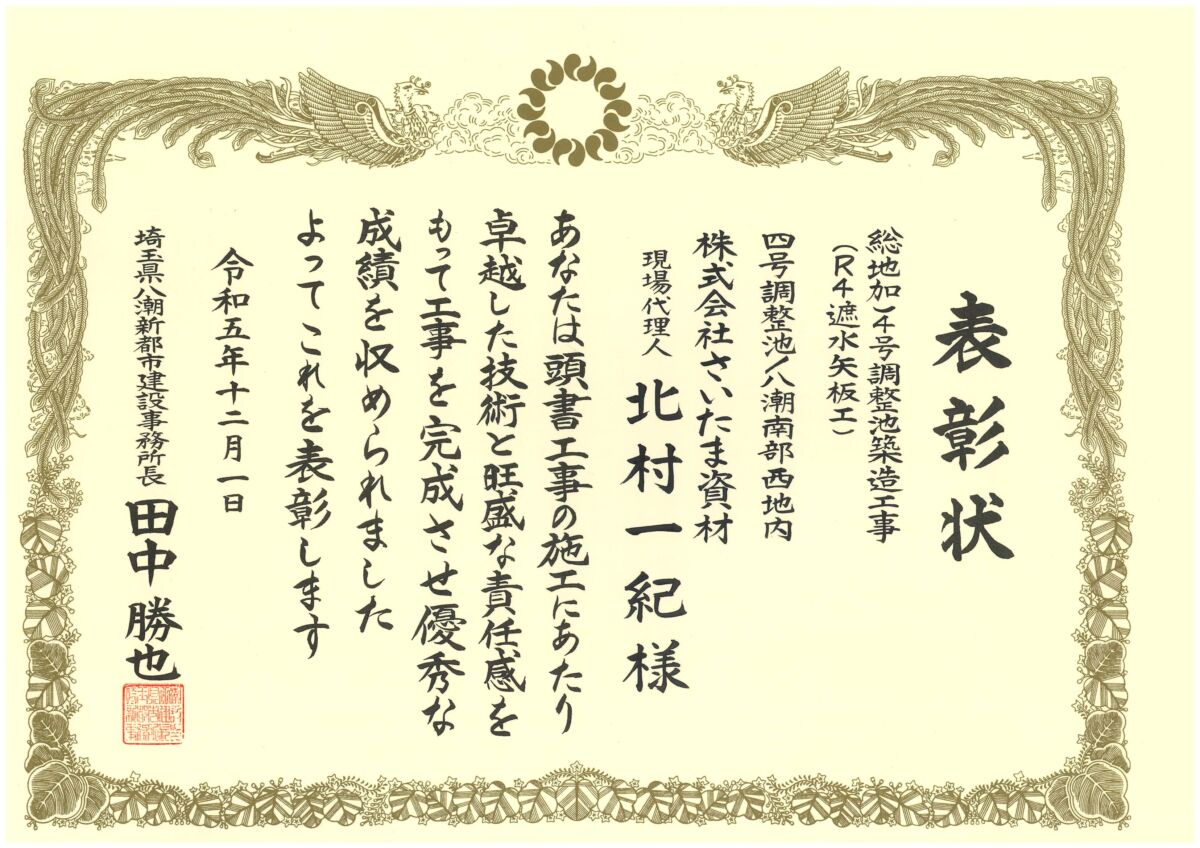 表彰状
総地加)4号調整池築造工事
(R4遮水矢板工)
四号調整池/八潮南部西地内
株式会社さいたま資材
現場代理人 北村一紀様
あなたは頭書工事の施工にあたり
卓越した技術と旺盛な責任感を
もって工事を完成させ優秀な
成績を収められました
よってこれを表彰します
令和五年十二月一日
埼玉県八潮新都市建設事務所長 田中勝也